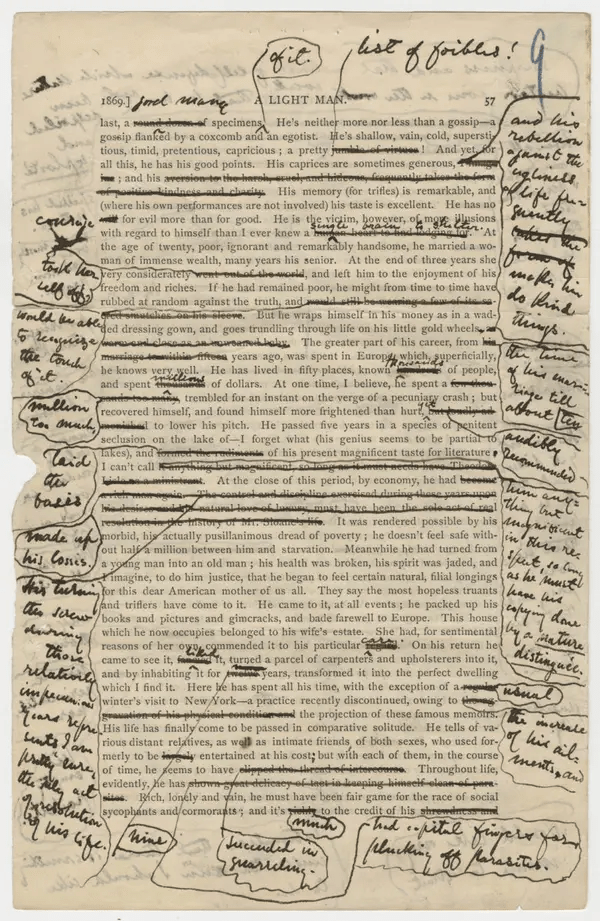 of it. list of foibles! 9
1869.] good many A LIGHT MAN. 57
last, a round dozen of specimens. He's neither more nor less than a gossip—a
gossip flanked by a coxcomb and an egotist. He's shallow, vain, cold, supersti-
tious, timid, pretentious, capricious; a pretty jumble of virtues! And yet, for
all this, he has his good points. His caprices are sometimes generous,
; and his aversion to the harsh, cruel, and hideous, frequently takes the form
of positive kindness and charity. His memory (for trifles) is remarkable, and
(where his own performances are not involved) his taste is excellent. He has no
for evil more than for good. He is the victim, however, of more illusions
single brain to shelter.
with regard to himself than I ever knew a human heart to find lodging for. At
the age of twenty, poor, ignorant and remarkably handsome, he married a wo-
man of immense wealth, many years his senior. At the end of three years she
very considerately went out of the world, and left him to the enjoyment of his
freedom and riches. If he had remained poor, he might from time to time have
rubbed at random against the truth, and would still be wearing a few of its
smutches on his sleeve. But he wraps himself in his money as in a wad-
ded dressing gown, and goes trundling through life on his little gold wheels,
The greater part of his career, from his
marriage to within fifteen years ago, was spent in Europe, which, superficially,
thousands
he knows very well. He has lived in fifty places, known of people,
millions
and spent thousands of dollars. At one time, I believe, he spent a few thou-
sands too many, trembled for an instant on the verge of a pecuniary crash; but
yet
recovered himself, and found himself more frightened than hurt,
to lower his pitch. He passed five years in a species of penitent
seclusion on the lake of—I forget what (his genius seems to be partial to
lakes), and formed the rudiments of his present magnificent taste for literature,
I can't call it anything but magnificent, so long as it must needs have Theodore
Lisle as a ministrant. At the close of this period, by economy, he had become
rich men again. The control and discipline exercised during these years upon
his desires and his natural love of luxury, must have been the sole act of real
resolution in the history of Mr. Sloane's life. It was rendered possible by his
morbid, his actually pusillanimous dread of poverty; he doesn't feel safe with-
out half a million between him and starvation. Meanwhile he had turned from
a young man into an old man; his health was broken, his spirit was jaded, and
I imagine, to do him justice, that he began to feel certain natural, filial longings
for this dear American mother of us all. They say the most hopeless truants
and triflers have come to it. He came to it, at all events; he packed up his
books and pictures and gimcracks, and bade farewell to Europe. This house
which he now occupies belonged to his wife's estate. She had, for sentimental
reasons of her own, commended it to his particular care. On his return he
liked
came to see it, it, turned a parcel of carpenters and upholsterers into it,
nine
and by inhabiting it for years, transformed it into the perfect dwelling
which I find. Here he has spent all his time, with the exception of a regular
winter's visit to New York—a practice recently discontinued, owing to
gravation of his physical condition and the projection of these famous memoirs.
His life has finally come to be passed in comparative solitude. He tells of va-
rious distant relatives, as well as intimate friends of both sexes, who used for-
merly to be largely entertained at his cost; but with each of them, in the course
of time, he seems to have slipped the thread of intercourse. Throughout life,
evidently, he has shown great delicacy of tact in keeping himself clean of para-
sites. Rich, lonely and vain, he must have been fair game for the race of social
sycophants and cormorants; and it's richly to the credit of his shrewdness and
much
courage
took her
self off.
would be able
to recognize
the touch
of it.
million
too much,
laid
the
bases
made up
his losses.
His turning
the screw
during
those
relatively
impecunious
years repre-
sents I am
pretty sure,
the only act
of resolution
of his life.
nine
succeeded in
quarreling.
had capital fingers for
plucking off parasites.
and his
rebellion
against the
ugliness
of life fre-
quently
takes the
form of
makes him
do kind
things.
the time
of his marri-
age till
about ten
audibly
recommended
him any-
thing but
magnificent
in this re-
spect, so long
as he must
have his
copying done
by a nature
distinguée.
usual
the increase
of his ail-
ments, and